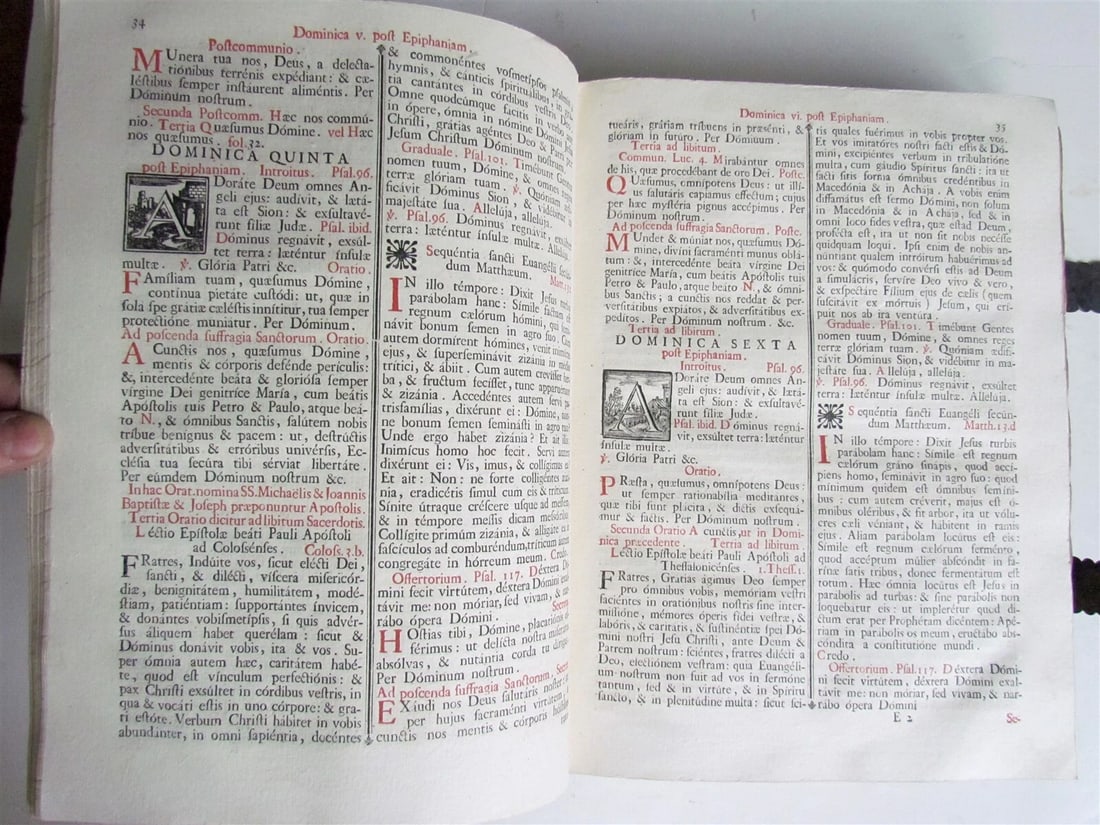 34
Dominica v. post Epiphaniam.
Postcommunio.
MUnera tua nos, Deus, a delecta-
tiónibus terrénis expédiant: & cæ-
léstibus semper instáurent aliméntis. Per
Dóminum nostrum.
Secunda Postcomm. Hæc nos commú-
nio. Tertia Quæsumus Dómine. vel Hæc
nos quæsumus. fol. 32.
DOMINICA QUINTA
post Epiphaniam. Introitus. Psal. 96.
ADoráte Deum omnes An-
geli ejus: audívit, & lætá-
ta est Sion: & exsultavé-
runt fíliæ Judæ. Psal. ibid.
Dóminus regnávit, exsúl-
tet terra: læténtur ínsulæ
multæ. ℣. Glória Patri &c. Oratio.
FAmíliam tuam, quæsumus Dómine,
contínua pietáte custódi: ut, quæ in
sola spe grátiæ cæléstis innítitur, tua semper
protectióne muniatur. Per Dóminum.
Ad poscenda suffragia Sanctorum. Oratio.
A Cunctis nos, quæsumus Dómine,
mentis & córporis defénde perículis:
&, intercedénte beáta & gloriósa semper
vírgine Dei genitríce María, cum beátis
Apóstolis tuis Petro & Paulo, atque beá-
to N., & ómnibus Sanctis, salútem nobis
tríbue benígnus & pacem: ut, destrúctis
adversitátibus & erróribus univérsis, Ec-
clésia tua secúra tibi sérviat libertáte.
Per eúmdem Dóminum nostrum &c.
In hac Orat. nomina SS. Michaëlis & Joannis
Baptistæ & Joseph præponuntur Apostolis.
Tertia Oratio dicitur ad libitum Sacerdotis.
Léctio Epístolæ beáti Pauli Apóstoli
ad Colossénses. Coloss. 3. b.
FRatres, Indúite vos, sicut elécti Dei,
sancti, & dilécti, víscera misericór-
diæ, benignitátem, humilitátem, modé-
stiam, patiéntiam: supportántes ínvicem,
& donántes vobismetípsis, si quis advér-
sus áliquem habet querélam: sicut &
Dóminus donávit vobis, ita & vos. Su-
per ómnia autem hæc, caritátem habé-
te, quod est vínculum perfectiónis: &
pax Christi exsúltet in córdibus vestris, in
qua & vocáti estis in uno córpore: & gra-
ti estóte. Verbum Christi hábitet in vobis
abundánter, in omni sapiéntia, docéntes
& commonéntes vosmetípsos, psalmis,
hymnis, & cánticis spirituálibus, in
tia cantántes in córdibus vestris
Omne quodcúmque fácitis in verbo
in ópere, ómnia in nómine Dómini
Christi, grátias agéntes Deo & Patri
Jesum Christum Dóminum nostrum.
Graduale. Psal. 101. Timébunt Gentes
nomen tuum, Dómine, & omnes
terræ glóriam tuam. ℣. Quóniam
ficávit Dóminus Sion, & vidébitur
majestáte sua. Allelúja, allelúja.
℣. Psal. 96. Dóminus regnávit, exsúltet
terra: læténtur ínsulæ multæ. Allelúja.
Sequéntia sancti Evangélii secún-
dum Matthæum. Matt. 13.
IN illo témpore: Dixit Jesus
parábolam hanc: Símile factum est
regnum cælórum hómini, qui
návit bonum semen in agro suo. Cum
autem dormírent hómines, venit inimícus
ejus, & superseminávit zizánia in médio
trítici, & ábiit. Cum autem crevísset
ba, & fructum fecísset, tunc apparuérunt
& zizánia. Accedéntes autem servi
trisfamílias, dixérunt ei: Dómine,
ne bonum semen seminásti in agro tuo
Unde ergo habet zizánia? Et ait illis
Inimícus homo hoc fecit. Servi autem
dixérunt ei: Vis, imus, & collígimus
Et ait: Non: ne forte colligéntes
nia, eradicétis simul cum eis & tríticum.
Sínite útraque créscere usque ad messem,
& in témpore messis dicam messóribus
Collígite primum zizánia, & alligáte
fascículos ad comburéndum, tríticum autem
congregáte in hórreum meum. Credo.
Offertorium. Psal. 117. Déxtera Dó-
mini fecit virtútem, déxtera Dómini
távit me: non móriar, sed vivam, &
rábo ópera Dómini. Secreta.
HOstias tibi, Dómine, placatiónis
férimus: ut delícta nostra
absólvas, & nutántia corda tu
Per Dóminum nostrum.
Ad poscenda suffragia Sanctorum. Secret.
EXáudi nos Deus salutáris noster:
per hujus sacraménti virtútem,
cunctis nos mentis & córporis
Dominica vi. post Epiphaniam.
35
tueáris, grátiam tríbuens in præsénti, &
glóriam in futúro. Per Dóminum.
Tertia ad libitum.
Commun. Luc. 4. Mirabántur omnes
de his, quæ procedébant de ore Dei. Postc.
QUæsumus, omnípotens Deus: ut illí-
us salutáris capiámus efféctum; cujus
per hæc mystéria pignus accépimus. Per
Dóminum nostrum.
Ad poscenda suffragia Sanctorum. Postc.
MUndet & múniat nos, quæsumus Dó-
mine, divíni sacraménti munus oblá-
tum: &, intercedénte beáta vírgine Dei
genitríce María, cum beátis Apóstolis tuis
Petro & Paulo, atque beáto N., & ómni-
bus Sanctis; a cunctis nos reddat & per-
versitátibus expiátos, & adversitátibus ex-
pedítos. Per Dóminum nostrum. &c.
Tertia ad libitum.
DOMINICA SEXTA
post Epiphaniam.
Introitus. Psal. 96.
ADoráte Deum omnes An-
geli ejus: audívit, & lætá-
ta est Sion: & exsultavé-
runt fíliæ Judæ.
Psal. ibid. Dóminus regná-
vit, exsúltet terra: læténtur
ínsulæ multæ.
℣. Glória Patri &c.
Oratio.
PRæsta, quæsumus, omnípotens Deus:
ut semper rationabília meditántes,
quæ tibi sunt plácita, & dictis exsequá-
mur & factis. Per Dóminum nostrum.
Secunda Oratio A cunctis, ut in Domi-
nica præcedente. Tertia ad libitum.
Léctio Epístolæ beáti Pauli Apóstoli ad
Thessalonicénses. 1. Thess. 1.
FRatres, Grátias ágimus Deo semper
pro ómnibus vobis, memóriam vestri
faciéntes in oratiónibus nostris sine inter-
missióne, mémores óperis fídei vestræ, &
labóris, & caritátis, & sustinéntiæ spei Dó-
mini nostri Jesu Christi, ante Deum &
Patrem nostrum: sciéntes, fratres dilécti a
Deo, electiónem vestram: quia Evangéli-
um nostrum non fuit ad vos in sermóne
tantum, sed & in virtúte, & in Spíritu
sancto, & in plenitúdine multa: sicut sci-
tis quales fuérimus in vobis propter vos.
Et vos imitatóres nostri facti estis & Dó-
mini, excipiéntes verbum in tribulatióne
multa, cum gáudio Spíritus sancti: ita ut
facti sitis forma ómnibus credéntibus in
Macedónia & in Achája. A vobis enim
diffamátus est sermo Dómini, non solum
in Macedónia & in Achája, sed & in
omni loco fides vestra, quæ est ad Deum,
profécta est, ita ut non sit nobis necésse
quidquam loqui. Ipsi enim de nobis an-
núntiant qualem intróitum habuérimus ad
vos: & quómodo convérsi estis ad Deum
a simulácris, servíre Deo vivo & vero,
& exspectáre Fílium ejus de cælis (quem
suscitávit ex mórtuis) Jesum, qui erí-
puit nos ab ira ventúra.
Graduale. Psal. 101. Timébunt Gentes
nomen tuum, Dómine, & omnes reges
terræ glóriam tuam. ℣. Quóniam ædifi-
cávit Dóminus Sion, & vidébitur in ma-
jestáte sua. Allelúja, allelúja.
℣. Psal. 96. Dóminus regnávit, exsúltet
terra: læténtur ínsulæ multæ. Allelúja.
Sequéntia sancti Evangélii secún-
dum Matthæum. Matth. 13. d
IN illo témpore: Dixit Jesus turbis
parábolam hanc: Símile est regnum
cælórum grano sinápis, quod accí-
piens homo, seminávit in agro suo: quod
mínimum quidem est ómnibus semíni-
bus: cum autem créverit, majus est ó-
mnibus oléribus, & fit arbor, ita ut vólu-
cres cæli véniant, & hábitent in ramis
ejus. Aliam parábolam locútus est eis:
Símile est regnum cælórum ferménto,
quod accéptum múlier abscóndit in fa-
rínæ satis tribus, donec fermentátum est
totum. Hæc ómnia locútus est Jesus in
parábolis ad turbas: & sine parábolis non
loquebátur eis: ut implerétur quod di-
ctum erat per Prophétam dicéntem: Apé-
riam in parábolis os meum, eructábo abs-
cóndita a constitutióne mundi.
Credo.
Offertorium. Psal. 117. Déxtera Dómi-
ni fecit virtútem, déxtera Dómini exal-
távit me: non móriar, sed vivam, & nar-
rábo ópera Dómini
E 2
Se-